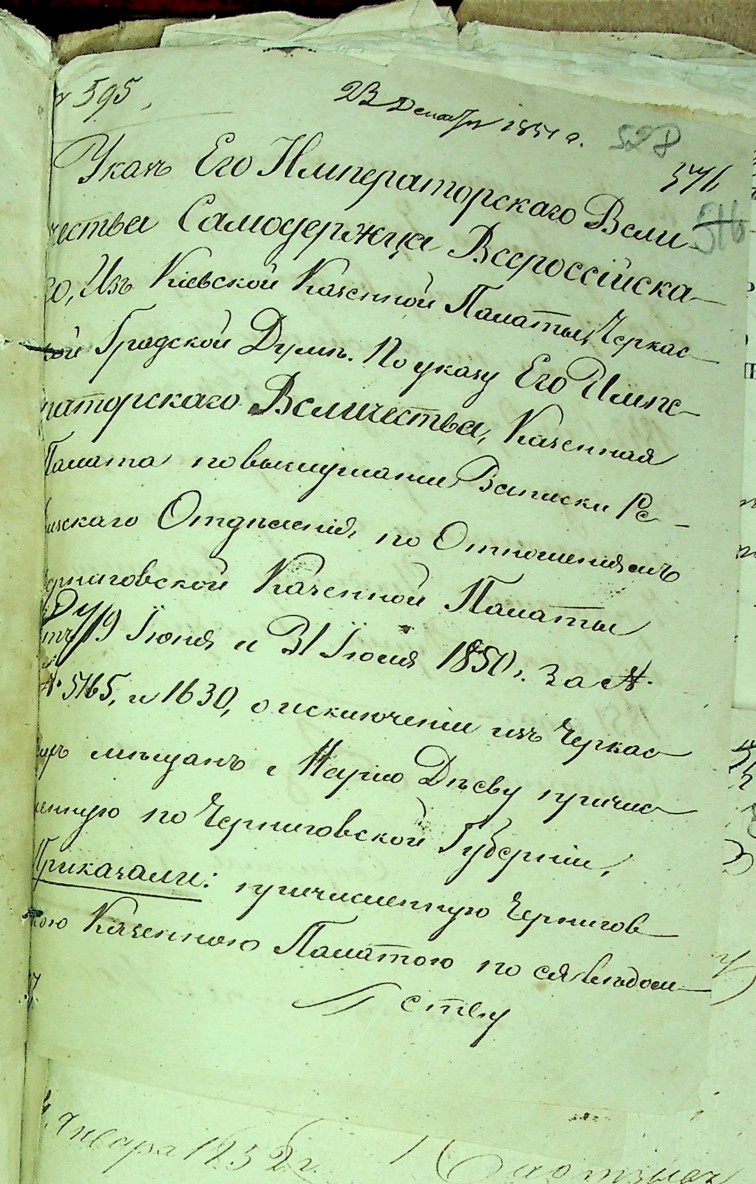 595,
23 Декабря 1851 г.
528
576
576
Указъ Его Императорскаго Вели-
чества Самодержца Всероссійска-
го, Изъ Кіевской Казенной Палаты, Черкас-
кой Градской Думѣ. По указу Его Импе-
раторскаго Величества, Казенная
Палата по выслушаніи Записки Ре-
визскаго Отдѣленія, по Отношеніямъ
Черниговской Казенной Палаты
отъ 19 Іюня и 31 Іюля 1850 г. за №
№ 5765, и 1630, о исключеніи изъ Черкас-
мѣщанъ Марію Дѣеву причис
ленную по Черниговской Губерніи,
Приказали: причисленную Чернигов-
кою Казенною Палатою по ея вѣдом-
ству
Января 1852 г.